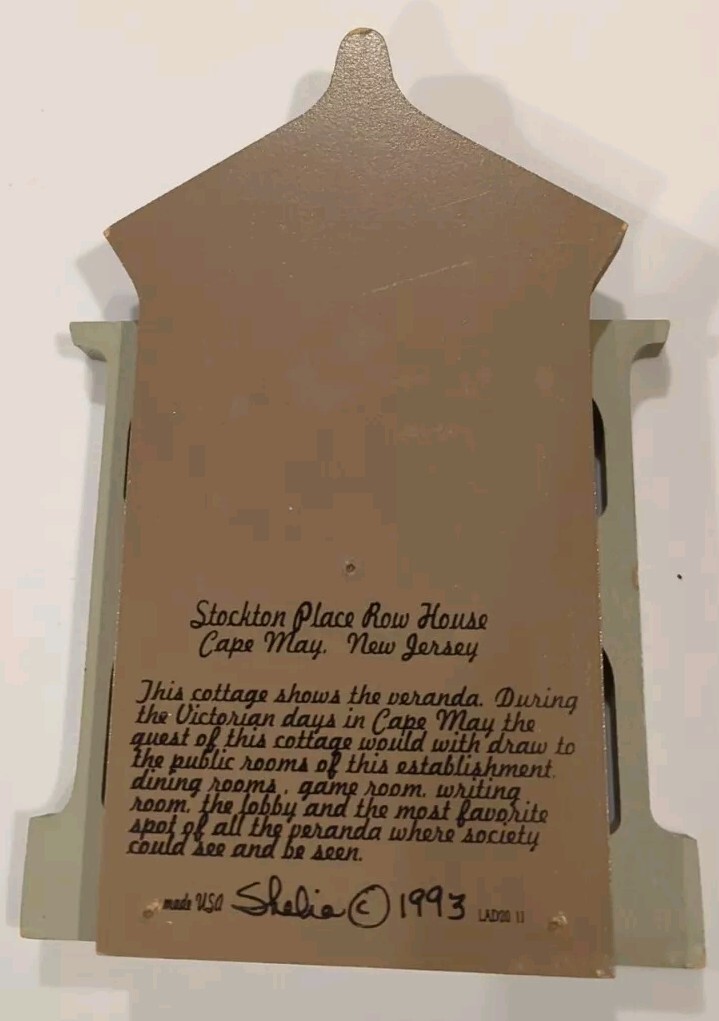 Stockton Place Row House
Cape May, New Jersey
This cottage shows the veranda. During
the Victorian days in Cape May the
guest of this cottage would with draw to
the public rooms of this establishment,
dining rooms, game room, writing
room, the lobby and the most favorite
spot of all the veranda where society
could see and be seen.
made USA Shelia © 1993 LAD20 11